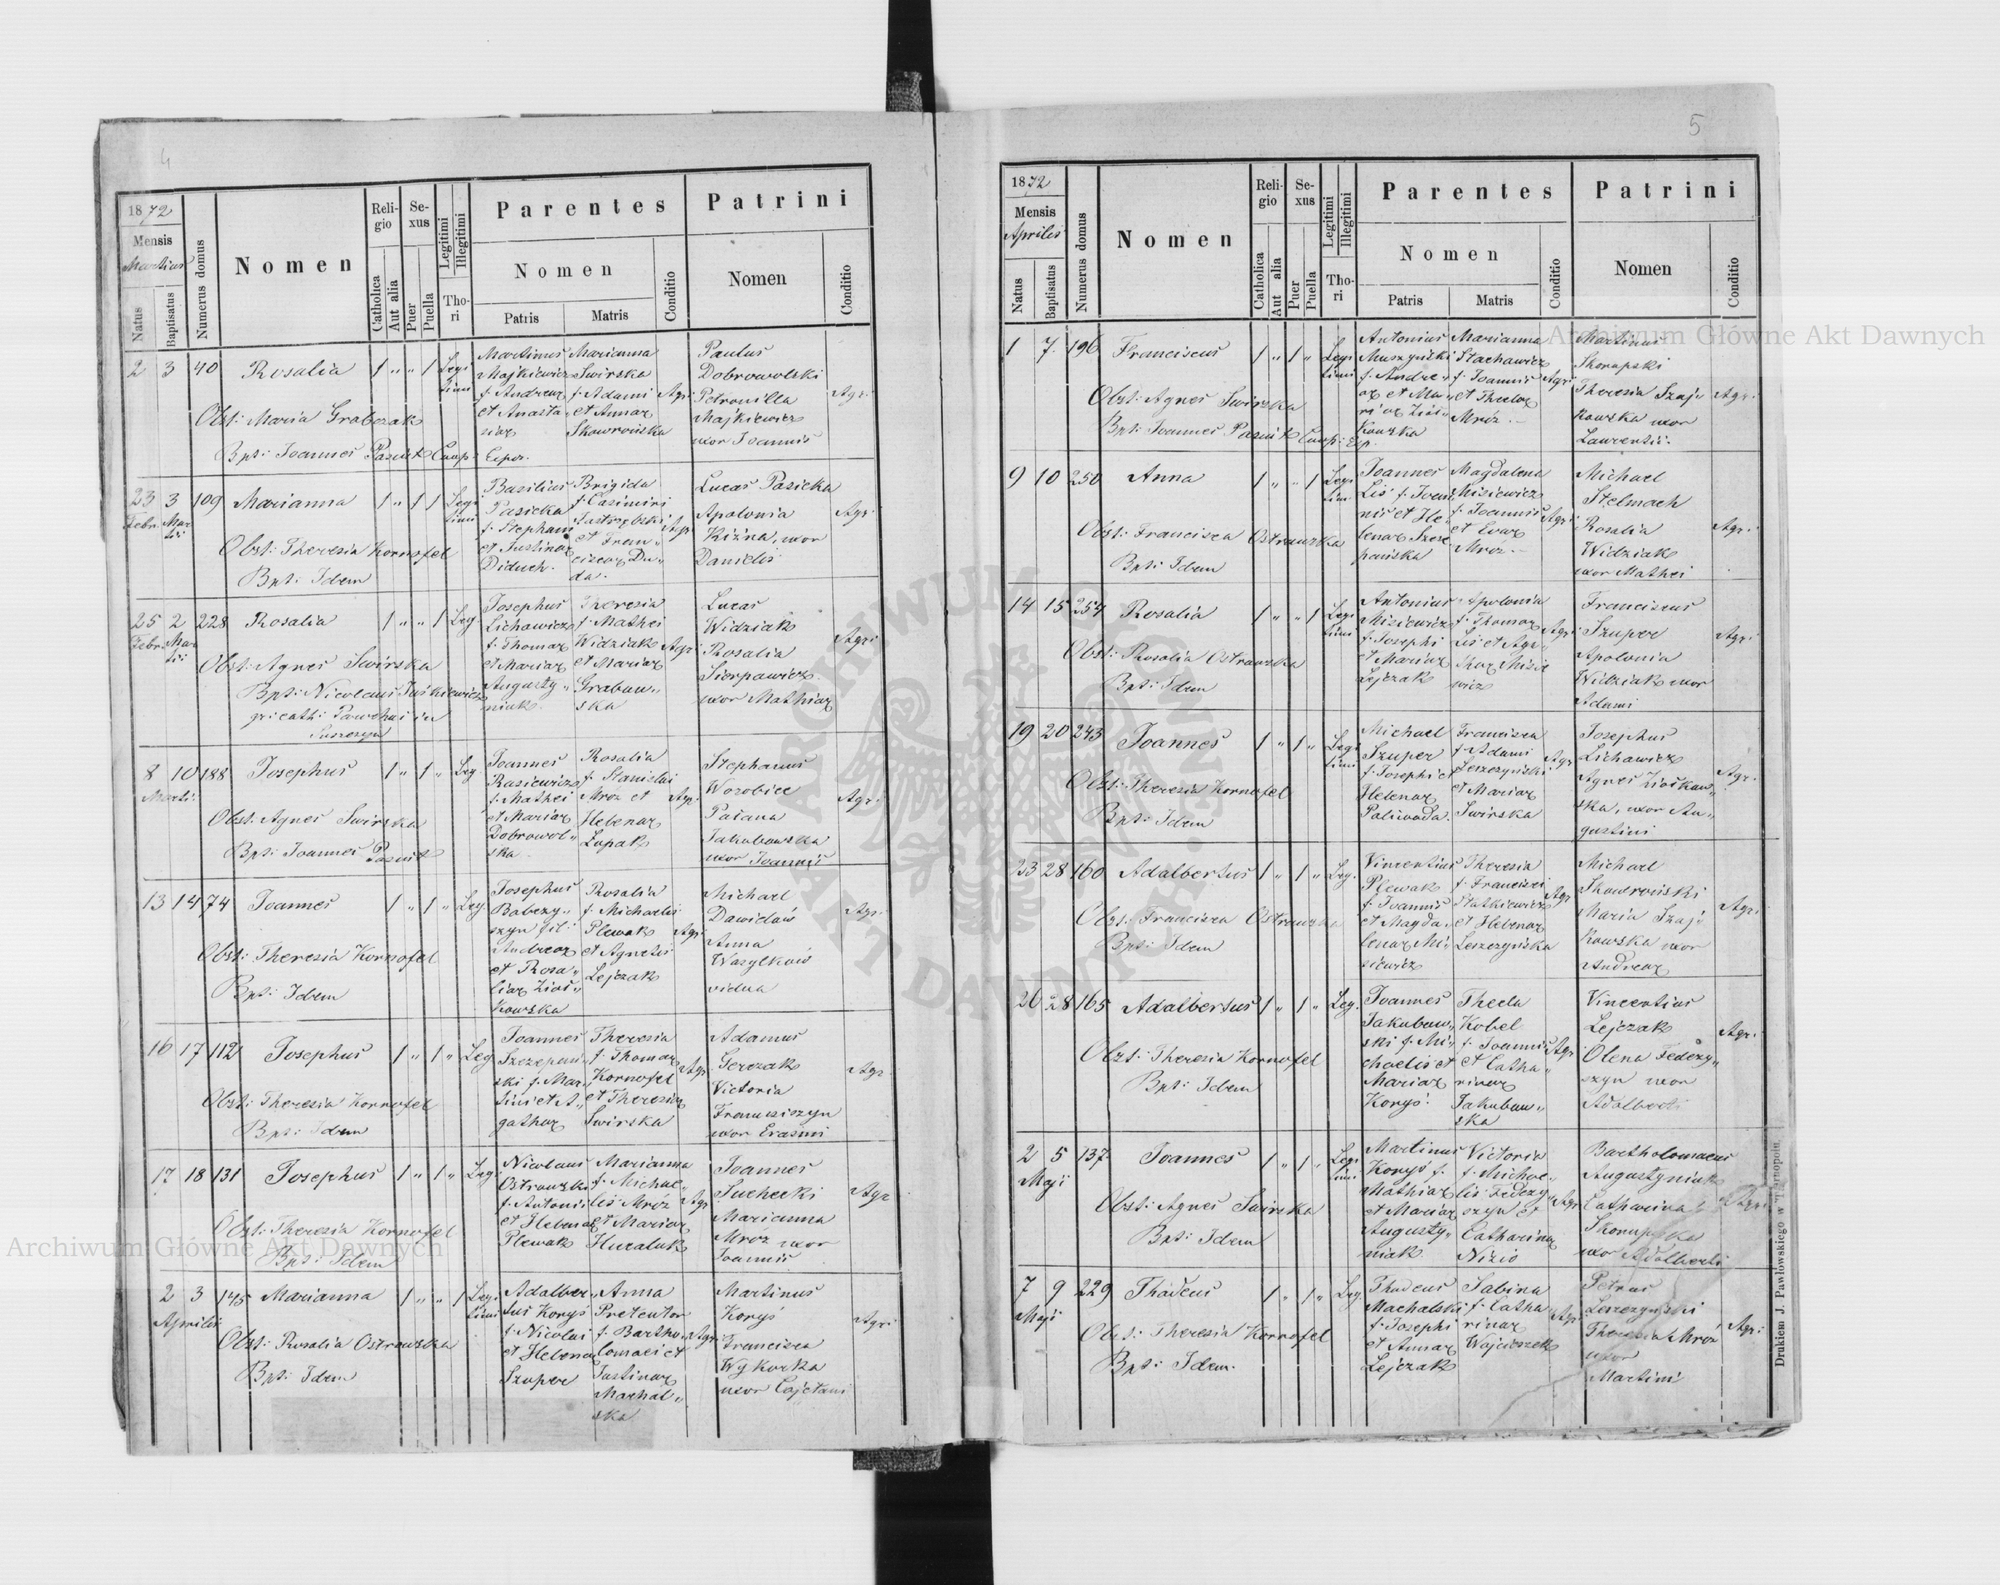 4
1872
Mensis
Martius
Natus
Baptisatus
Numerus domus
Nomen
Religio
Catholica
Aut alia
Sexus
Puer
Puella
Legitimi
Illegitimi
Thori
Parentes
Nomen
Patris
Matris
Conditio
Patrini
Nomen
Conditio
2 3 40 Rosalia 1 " " 1 Legitimi
Obst: Maria Grabczak
Bpt: Joannes Pasiut Coop: Expos.
Martinus
Majkiewicz
f. Andreae
et Anastasiae
Marianna
Swirska
f. Adami
et Annae
Skowrońska
Agr:
Paulus
Dobrowolski
Petronilla
Majkiewicz
uxor Joannis
Agr:
23 3 109 Marianna 1 " " 1 Legitimi
Febr: Martii
Obst: Theresia Kornafel
Bpt: Idem
Basilius
Pasicka
f. Stephani
et Justinae
Diduch.
Brigida
f. Casimiri
Jastrzębski
et Franciscae Duda.
Agr:
Lucas Pasicka
Apolonia
Kiżna, uxor
Danielis
Agr:
25 2 228 Rosalia 1 " " 1 Leg.
Febr: Martii
Obst: Agnes Swirska
Bpt: Nicolaus Juśkiewicz
gr: cath: Parochus in
Suszczyn
Josephus
Lichawicz
f. Thomae
et Mariae
Augustyniak
Theresia
f. Mathei
Widziak
et Mariae
Grabowska
Agr:
Lucas
Widziak
Rosalia
Sierpawicz
uxor Mathiae
Agr:
8 10 188 Josephus 1 " 1 " Leg.
Martii
Obst: Agnes Swirska
Bpt: Joannes Pasiut
Joannes
Rasiewicz
f. Mathei
et Mariae
Dobrowolska
Rosalia
f. Stanislai
Mróz et
Helenae
Łupak
Agr:
Stephanus
Worobiec
Paiana
Jakubowska
uxor Joannis
Agr:
13 14 74 Joannes 1 " 1 " Leg.
Obst: Theresia Kornafel
Bpt: Idem
Josephus
Babczyszyn fil:
Andreae
et Rosaliae Ziółkowska
Rosalia
f. Michaelis
Plewak
et Agnetis
Lejczak
Agr:
Michael
Dawidów
Anna
Wasylków
vidua
Agr:
16 17 112 Josephus 1 " 1 " Leg
Obst: Theresia Kornafel
Bpt: Idem
Joannes
Szczepański f. Martini et Agathae
Theresia
f. Thomae
Kornafel
et Theresiae
Swirska
Agr:
Adamus
Gerczak
Victoria
Franusiszyn
uxor Erasmi
Agr:
17 18 131 Josephus 1 " 1 " Leg
Obst: Theresia Kornafel
Bpt: Idem
Nicolaus
Ostrowska
f. Antonii
et Helenae
Plewak
Marianna
f. Michaelis Mróz
et Mariae
Hucaluk
Agr
Joannes
Suchecki
Marianna
Mróz uxor
Joannis
Agr
2 3 145 Marianna 1 " " 1 Legitimi
Aprilis
Obst: Rosalia Ostrowska
Bpt: Idem
Adalbertus Korys
f. Nicolai
et Helenae
Szuper
Anna
Pretentor
f. Bartholomaei et
Justinae
Machalska
Agr:
Martinus
Koryś
Francisca
Wojkorka
uxor Cajetani
Agr:
5
1872
Mensis
Aprilis
Natus
Baptisatus
Numerus domus
Nomen
Religio
Catholica
Aut alia
Sexus
Puer
Puella
Legitimi
Illegitimi
Thori
Parentes
Nomen
Patris
Matris
Conditio
Patrini
Nomen
Conditio
1 7 196 Franciscus 1 " 1 " Legitimi
Obst: Agnes Swirska
Bpt: Joannes Pasiut Coop: Exp.
Antonius
Muszyński
f. Andreae et Mariae Ziółkowska
Marianna
Stachawicz
f. Joannis
et Theclae
Mróz
Agr:
Martinus
Skorupski
Theresia Szajkowska uxor
Laurentii
Agr:
9 10 250 Anna 1 " " 1 Legitimi
Obst: Francisca Ostrowska
Bpt: Idem
Joannes
Liś f. Joannis et Helenae Szczepańska
Magdalena
Misiewicz
f. Joannis
et Evae
Mróz
Agr:
Michael
Stelmach
Rosalia
Widziak
uxor Mathei
Agr:
14 15 254 Rosalia 1 " " 1 Legitimi
Obst: Rosalia Ostrowska
Bpt: Idem
Antonius
Misiewicz
f. Josephi
et Mariae
Lejczak
Apolonia
f. Thomae
Liś et Misiewicz
Agr:
Franciscus
Szuper
Apolonia
Widziak uxor
Adami
Agr:
19 20 243 Joannes 1 " 1 " Legitimi
Obst: Theresia Kornafel
Bpt: Idem
Michael
Szuper
f. Josephi et
Helenae
Paliwoda.
Francisca
f. Adami
Leszczyński
et Mariae
Swirska
Agr:
Josephus
Lichawicz
Agnes Ziółkowska, uxor Augustini
Agr:
23 28 160 Adalbertus 1 " 1 " Leg.
Obst: Francisca Ostrowska
Bpt: Idem
Vincentius
Plewak
f. Joannis
et Magdalenae Misiewicz
Theresia
f. Francisci
Statkiewicz
et Helenae
Leszczyńska
Agr
Michael
Skowroński
Maria Szajkowska uxor
Andreae
Agr:
26 28 165 Adalbertus 1 " 1 " Leg.
Obst: Theresia Kornafel
Bpt: Idem
Joannes
Jakubowski f. Michaelis et
Mariae
Koryś.
Thecla
Kobel
f. Joannis
et Catharinae
Jakubowska
Agr
Vincentius
Lejczak
Olena Fedczyszyn uxor
Adalberti
Agr:
2 5 137 Joannes 1 " 1 " Legitimi
Maji
Obst: Agnes Swirska
Bpt: Idem
Martinus
Koryś f.
Mathiae
et Mariae
Augustyniak
Victoria
f. Michaelis Fedczyszyn et
Catharinae
Nizio
Agr:
Bartholomaeus
Augustyniak
Catharina
Skorupska
uxor Adalberti
Agr:
7 9 229 Thadeus 1 " 1 " Leg
Maji
Obst: Theresia Kornafel
Bpt: Idem.
Thadeus
Machalski
f. Josephi
et Annae
Lejczak
Sabina
f. Catharinae
Wojciszek
Agr:
Petrus
Leszczyński
Theresia Mróz
uxor
Martini
Agr:
Drukiem J. Pawłowskiego w Tarnopolu.
Archiwum Główne Akt Dawnych
Archiwum Główne Akt Dawnych
ARCHIWUM GŁÓWNE AKT DAWNYCH